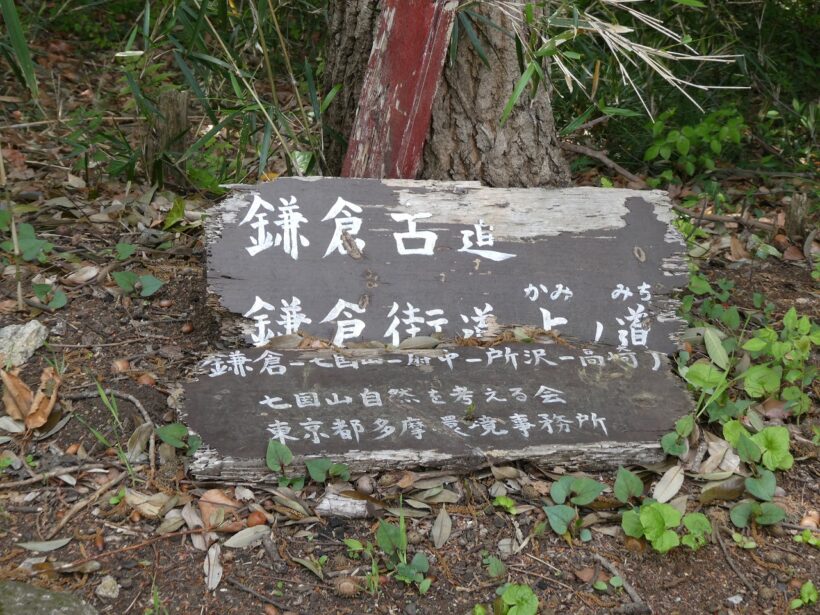 鎌倉古道
かみ みち
鎌倉街道上ノ道
鎌倉–七国山–府中–所沢–高崎
七国山自然を考える会
東京都多摩環境事務所